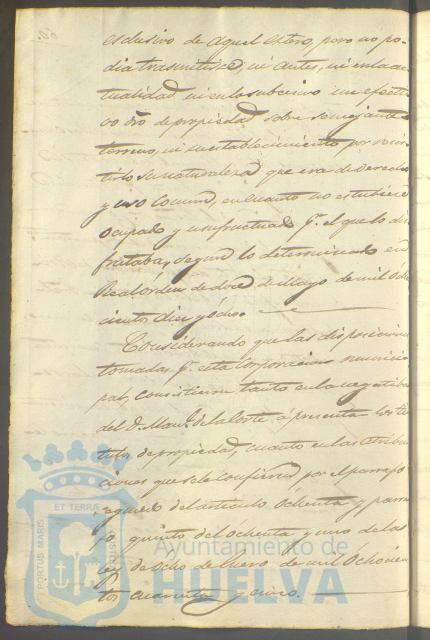 esclusivo de aquel estero, pero no po-
dia trasmitirse, ni antes, ni en la ac-
tualidad ni en lo subcesivo un efecti
vo dro de propiedad sobre semejante
terreno, ni su establecimiento por resis-
tirlo su naturaleza que era de derecho
y uso comun, en cuanto no estubiere
ocupado y usufructuado pr. el que lo dis
frutaba, segun lo determinado en
Real órden de doce de Mayo de mil ocho
cientos diez y ócho.
Considerando que las disposiciones
tomadas pr. esta Corporacion munici-
pal, consistieron tanto en la negativa
del D. Manl. de la Corte, á presentar los tí
tulos de propiedad, cuanto en las atribu
ciones que se le confieren por el parrafo
segundo del articulo ochenta y parra
fo quinto del ochenta y uno de la
ley de ocho de Enero de mil ochocien
tos cuarenta y cinco.
PORTUS MARIS ET TERRÆ CUSTODIA
Ayuntamiento de
HUELVA